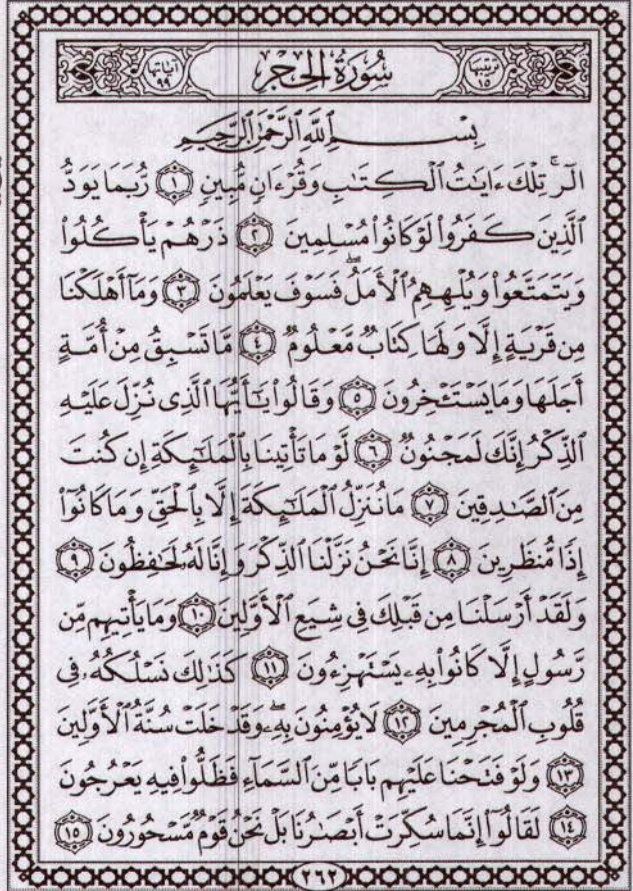 ترتيبها ١٥ سُورَةُ الحِجْرِ آياتها ٩٩
بِسْمِ ٱللَّهِ ٱلرَّحْمَٰنِ ٱلرَّحِيمِ
الٓر ۚ تِلْكَ ءَايَٰتُ ٱلْكِتَٰبِ وَقُرْءَانٍ مُّبِينٍ ١ رُّبَمَا يَوَدُّ
ٱلَّذِينَ كَفَرُوا۟ لَوْ كَانُوا۟ مُسْلِمِينَ ٢ ذَرْهُمْ يَأْكُلُوا۟
وَيَتَمَتَّعُوا۟ وَيُلْهِهِمُ ٱلْأَمَلُ ۖ فَسَوْفَ يَعْلَمُونَ ٣ وَمَآ أَهْلَكْنَا
مِن قَرْيَةٍ إِلَّا وَلَهَا كِتَابٌ مَّعْلُومٌ ٤ مَّا تَسْبِقُ مِنْ أُمَّةٍ
أَجَلَهَا وَمَا يَسْتَـْٔخِرُونَ ٥ وَقَالُوا۟ يَٰٓأَيُّهَا ٱلَّذِى نُزِّلَ عَلَيْهِ
ٱلذِّكْرُ إِنَّكَ لَمَجْنُونٌ ٦ لَّوْ مَا تَأْتِينَا بِٱلْمَلَٰٓئِكَةِ إِن كُنتَ
مِنَ ٱلصَّٰدِقِينَ ٧ مَا نُنَزِّلُ ٱلْمَلَٰٓئِكَةَ إِلَّا بِٱلْحَقِّ وَمَا كَانُوٓا۟
إِذًا مُّنظَرِينَ ٨ إِنَّا نَحْنُ نَزَّلْنَا ٱلذِّكْرَ وَإِنَّا لَهُۥ لَحَٰفِظُونَ ٩
وَلَقَدْ أَرْسَلْنَا مِن قَبْلِكَ فِى شِيَعِ ٱلْأَوَّلِينَ ١٠ وَمَا يَأْتِيهِم مِّن
رَّسُولٍ إِلَّا كَانُوا۟ بِهِۦ يَسْتَهْزِءُونَ ١١ كَذَٰلِكَ نَسْلُكُهُۥ فِى
قُلُوبِ ٱلْمُجْرِمِينَ ١٢ لَا يُؤْمِنُونَ بِهِۦ ۖ وَقَدْ خَلَتْ سُنَّةُ ٱلْأَوَّلِينَ
١٣ وَلَوْ فَتَحْنَا عَلَيْهِم بَابًا مِّنَ ٱلسَّمَآءِ فَظَلُّوا۟ فِيهِ يَعْرُجُونَ
١٤ لَقَالُوٓا۟ إِنَّمَا سُكِّرَتْ أَبْصَٰرُنَا بَلْ نَحْنُ قَوْمٌ مَّسْحُورُونَ ١٥
٢٦٢